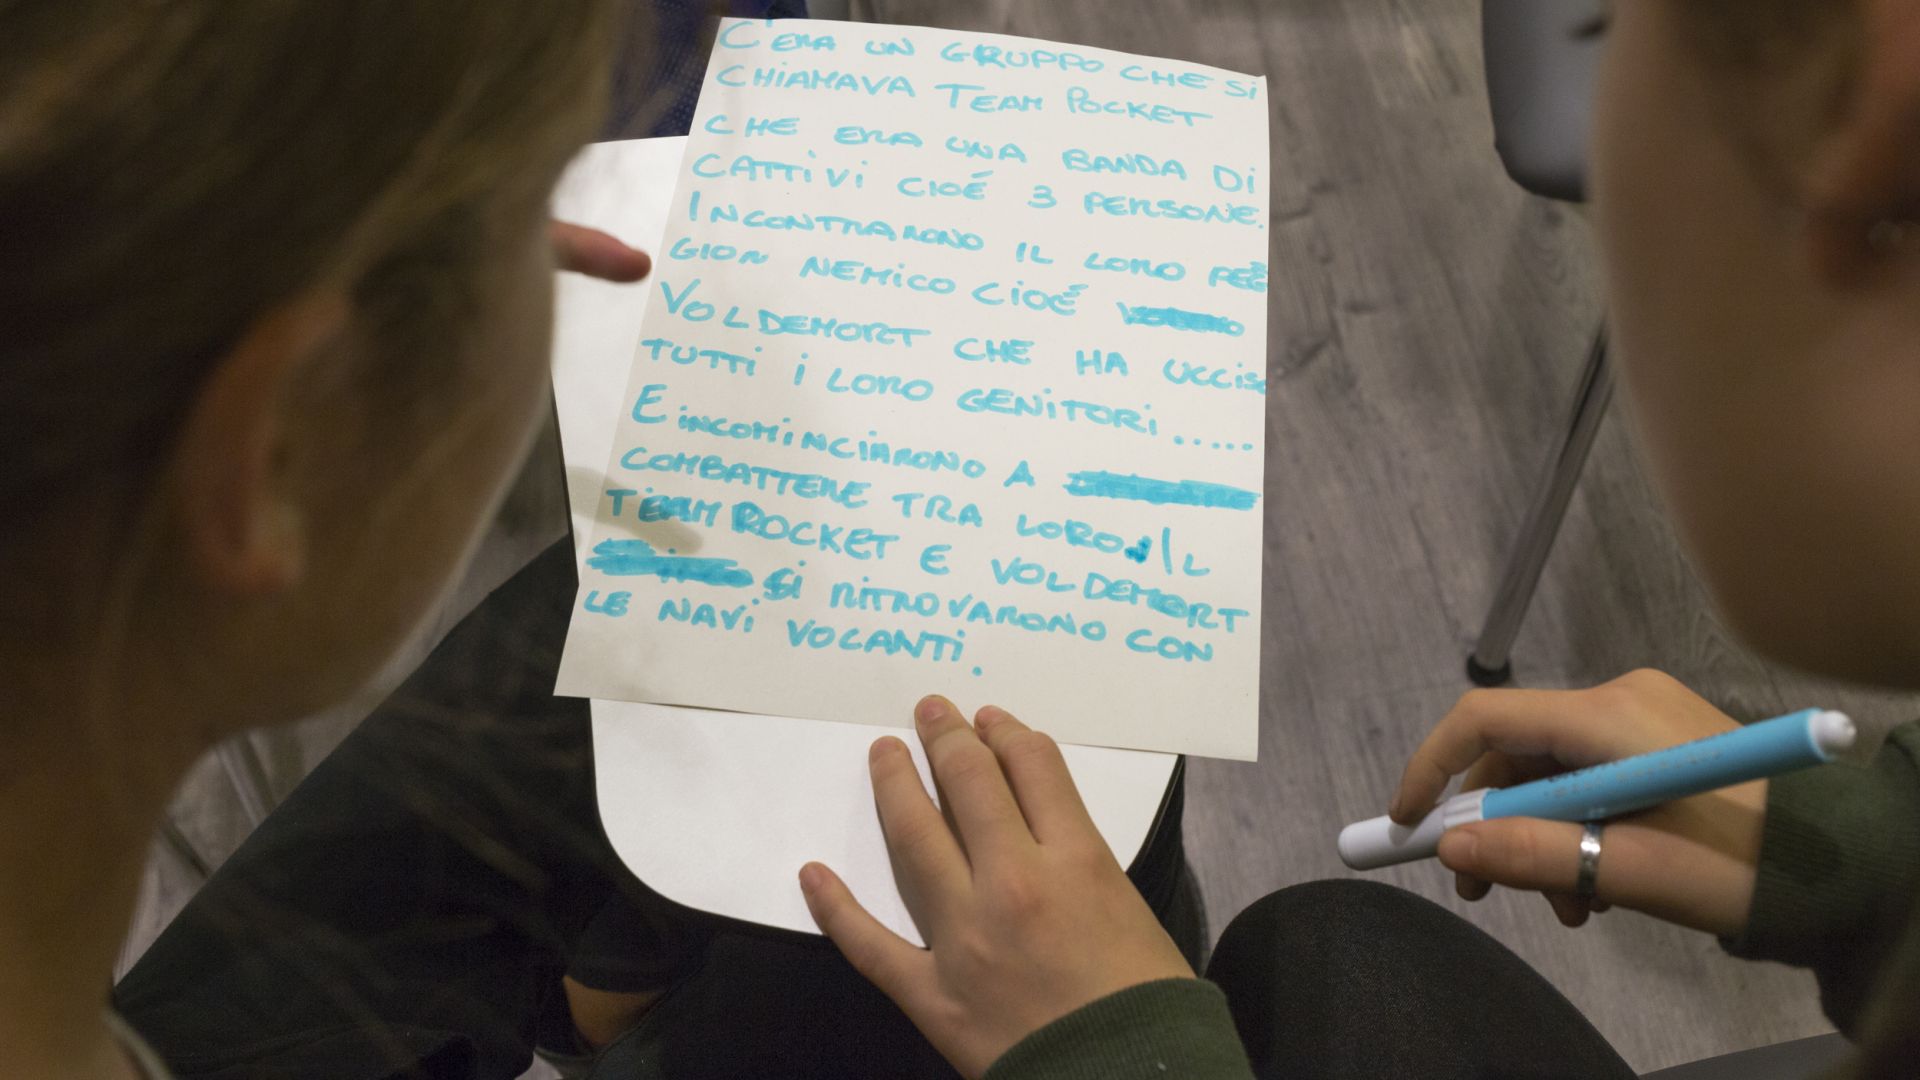 C'ERA UN GRUPPO CHE Si
CHiAMAVA TEAM POCKET
CHE ERA UNA BANDA Di
CATTiVi CIOÉ 3 PERSONE.
INCONTRARONO IL LORO PEG
GIOR NEMiCO CiOÉ
VOLDEMORT CHE HA UCCISO
TUTTi i LORO GENiTORi .....
E iNCOMiNCiARONO A
COMBATTERE TRA LORO. IL
TEAM ROCKET E VOLDEMORT
Si RiTROVARONO CON
LE NAVi VOLANTi.